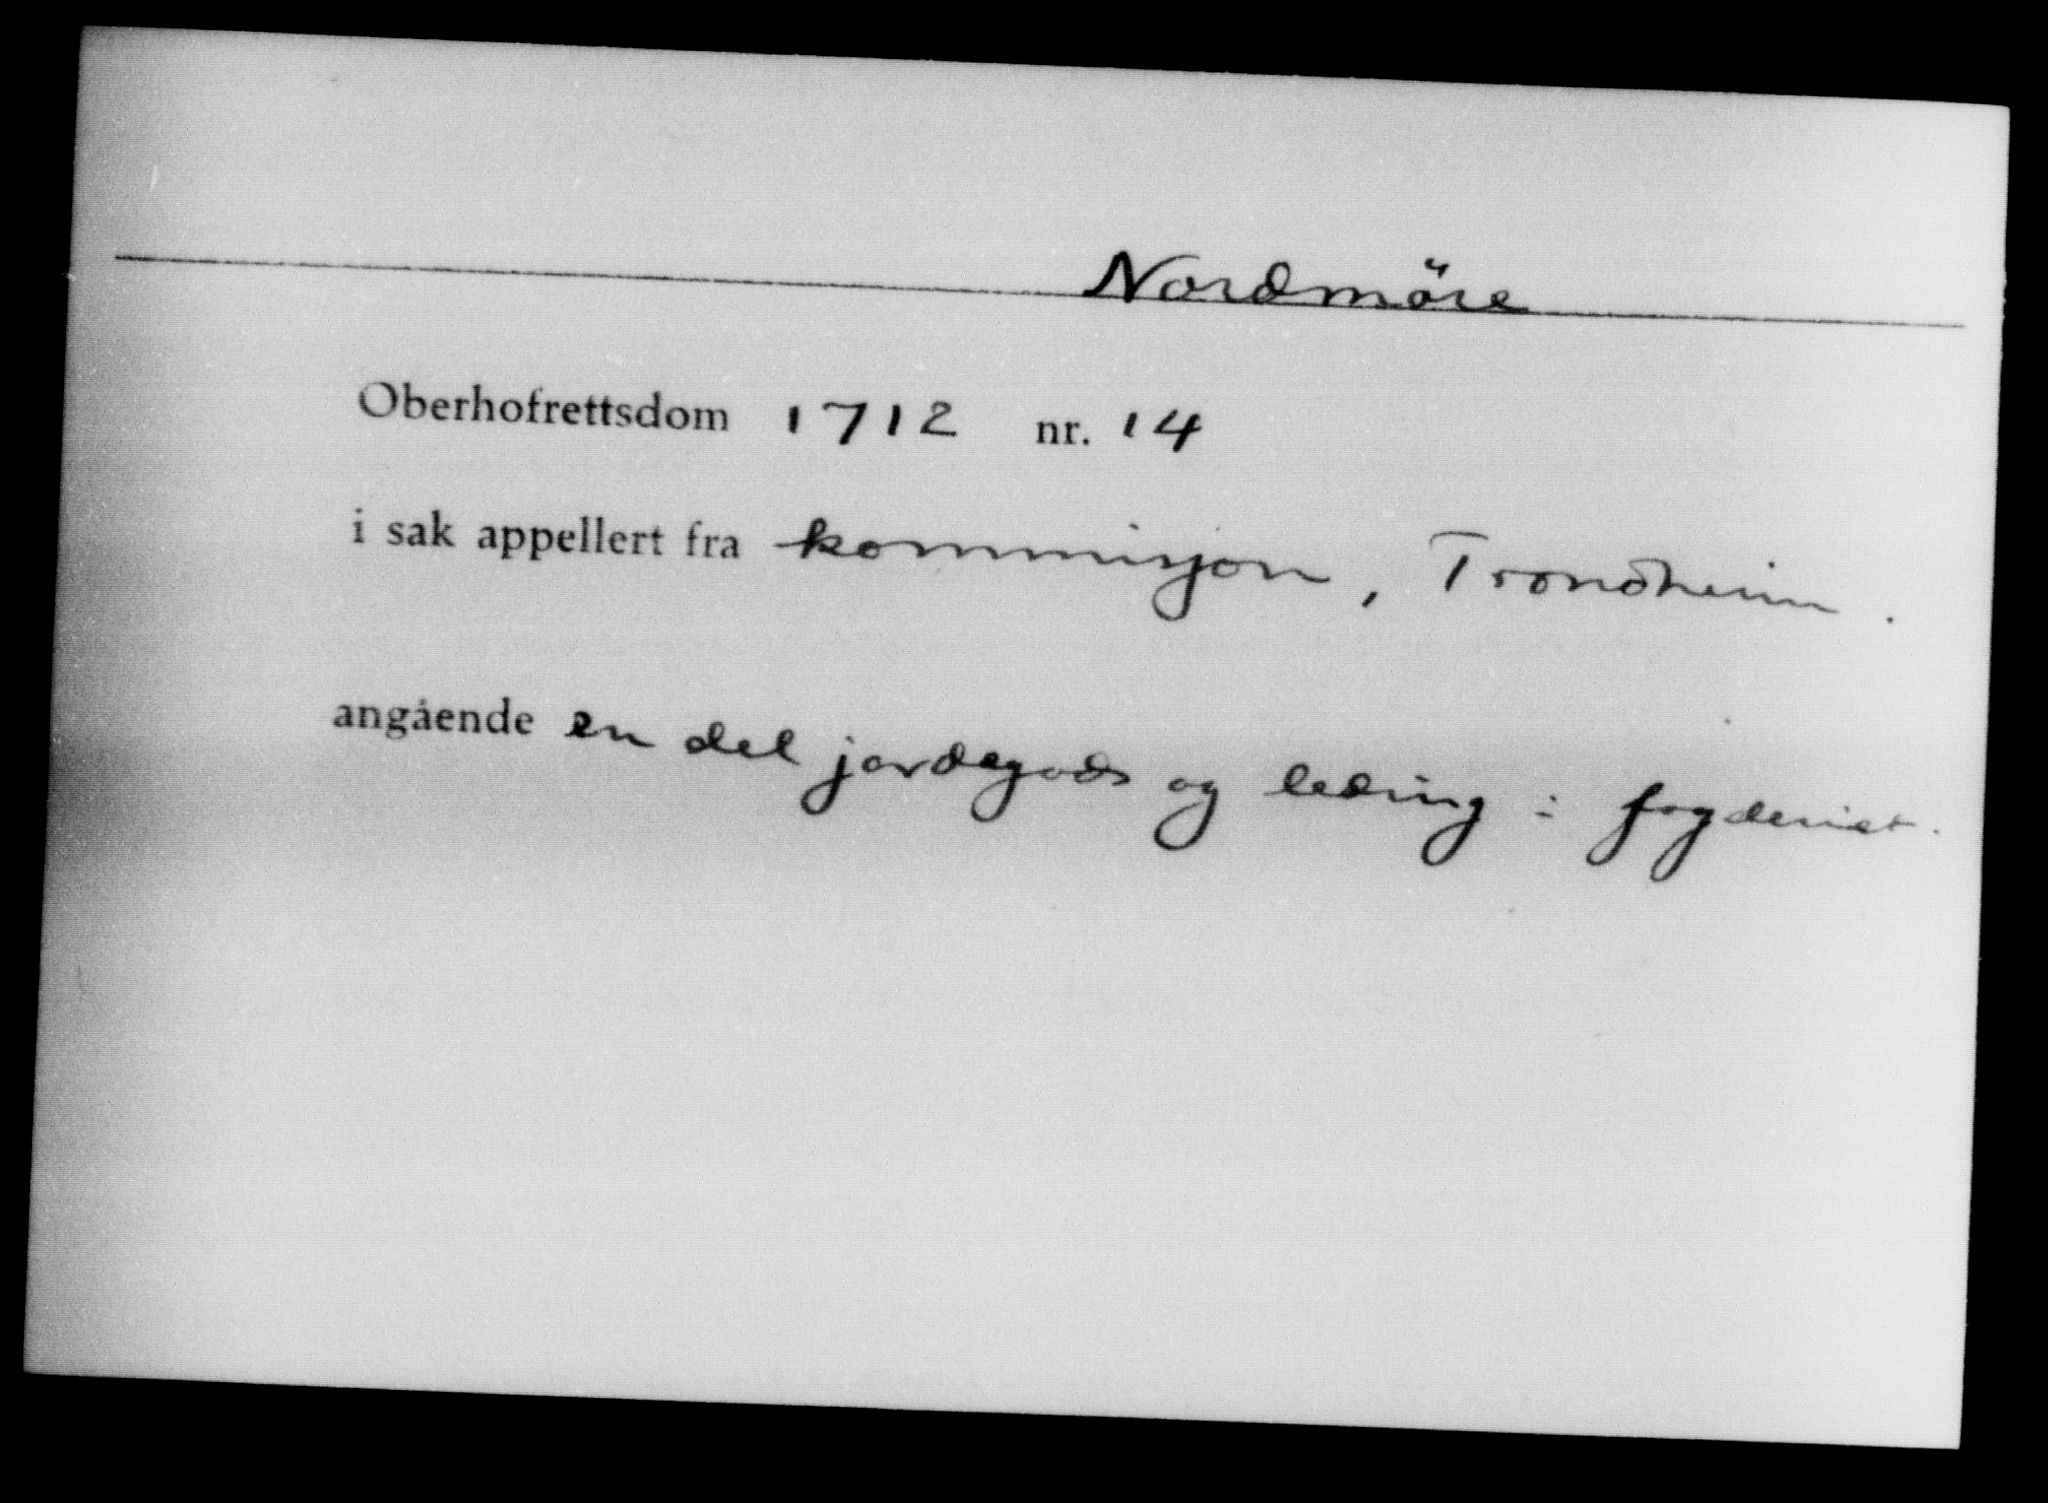 Nordmöre
Oberhofrettsdom 1712 nr. 14
i sak appellert fra kommisjon, Trondheim.
angående en del jordegods og leding i fogderiet.